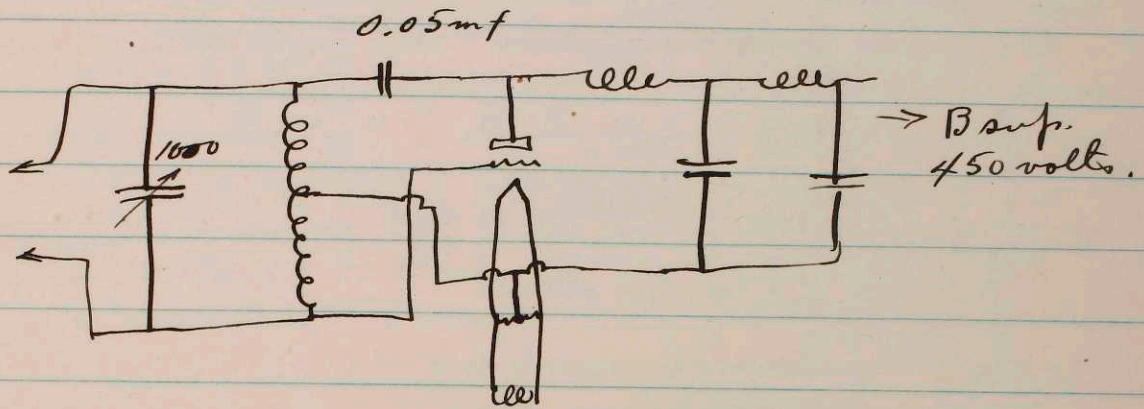 0.05mf
1000
→ B sup.
450 volts.